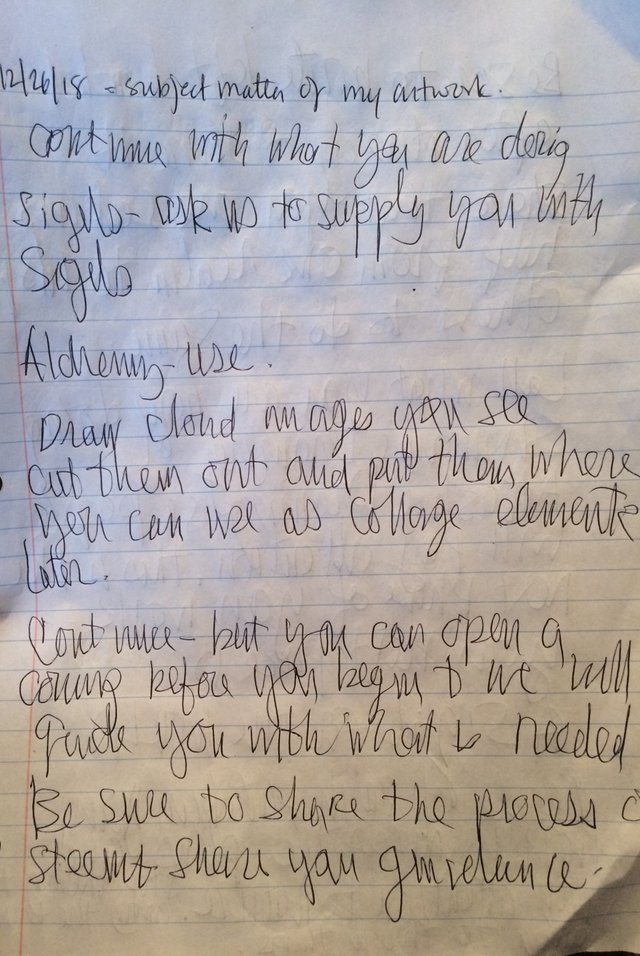 12/26/18 - subject matter of my artwork.
Continue with what you are doing
Sigils - ask us to supply you with
Sigils
Alchemy - use.
Draw cloud images you see
cut them out and put them where
you can use as collage elements
later.
Continue - but you can open a
before you begin & we will
guide you with what is needed
Be sure to share the process
steemit share your guidance.